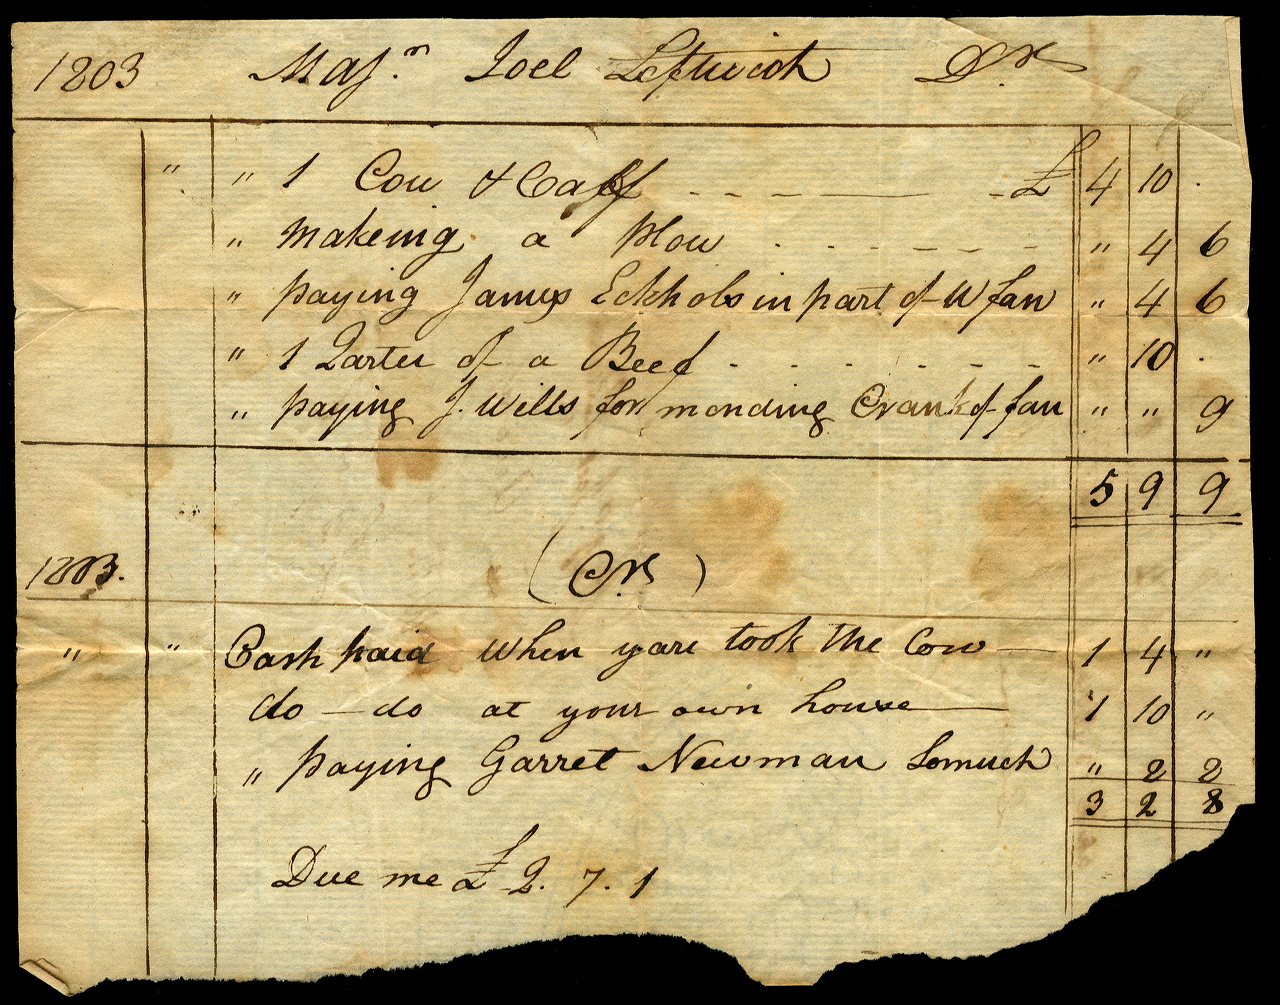 1803 Majr. Joel Leftwich Dr
" " 1 Cow & Caff £ 4 10 .
" Makeing a plow " 4 6
" paying James Eckhols in part of W fan " 4 6
" 1 Qarter of a Beef " 10 .
" paying J. Wills for mending Crank of fan " " 9
5 9 9
1803. (Cr.)
" " Cash paid when you took the Cow 1 4 "
do do at your own house 1 10 "
" paying Garret Newman Somuch " 2 2
3 2 8
Due me £ 2. 7. 1